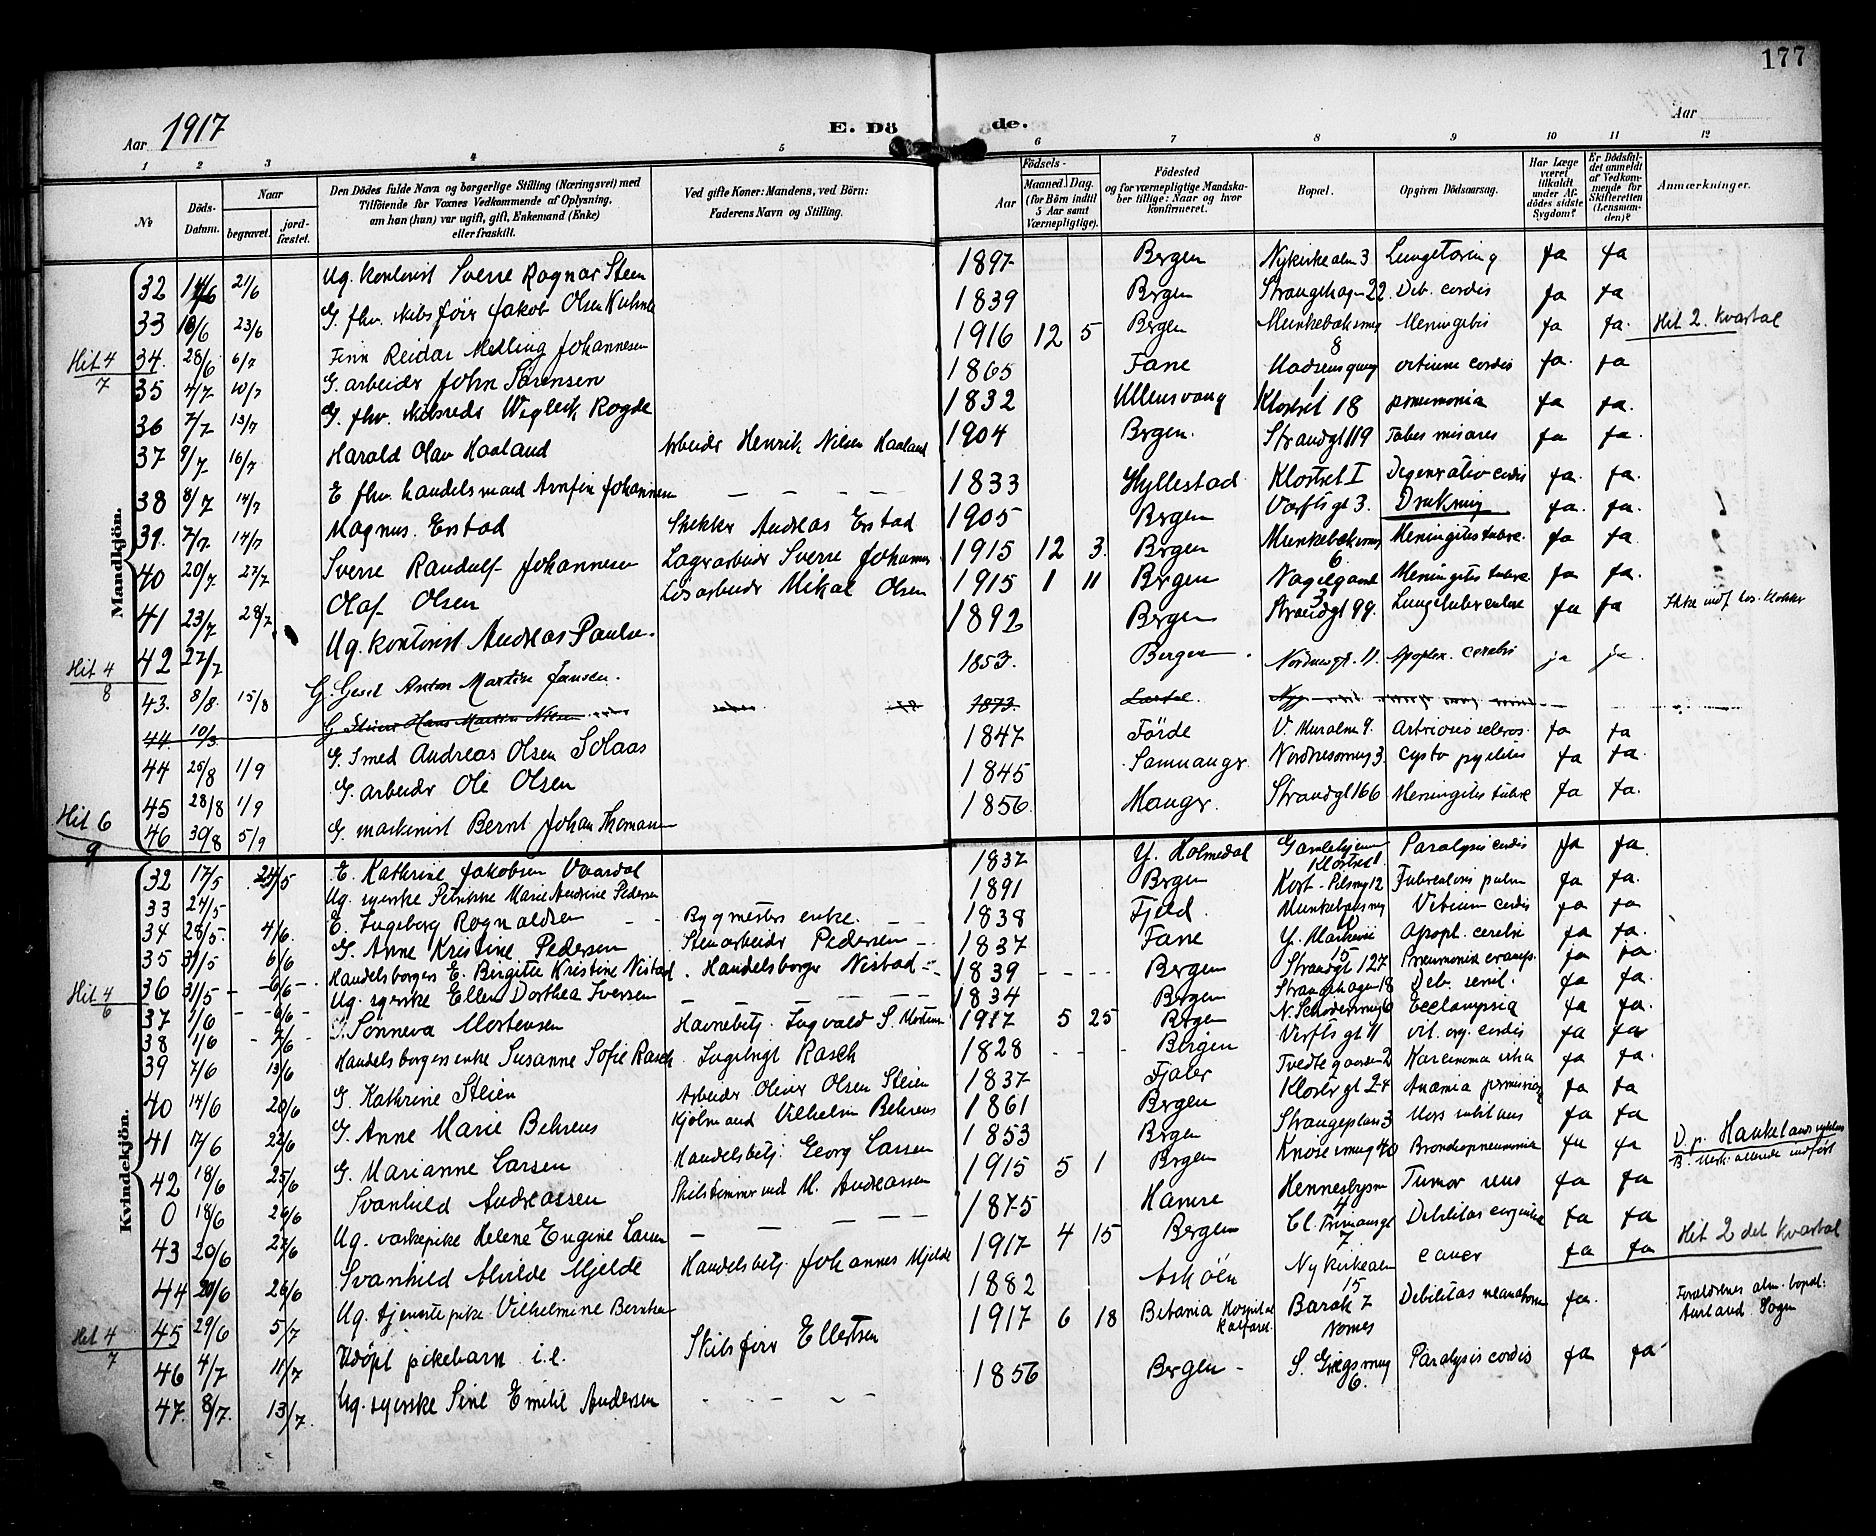 177
Aar 1917 E. Døde. Aar
1 2 3 4 5 6 7 8 9 10 11 12
No
Døds-Datum.
Naar begravet. jordfæstet.
Den Dødes fulde Navn og borgerlige Stilling (Næringsvei) med Tilføiende for Voxnes Vedkommende af Oplysning, om han (hun) var ugift, gift, Enkemand (Enke) eller fraskilt.
Ved gifte Koner: Mandens, ved Børn: Faderens Navn og Stilling.
Fødsels-
Aar Maaned. Dag. (for Børn indtil 5 Aar samt Værnepligtige).
Fødested og for værnepligtige Mandskaber tillige: Naar og hvor konfirmeret.
Bopæl.
Opgiven Dødsaarsag.
Har Læge været tilkaldt under Afdødes sidste Sygdom?
Er Dødsfaldet anmeldt af Vedkommende for Skifteretten (Lensmanden)?
Anmærkninger.
Mandkjön.
32 14/6 21/6 Ug. kontorist Sverre Ragnar Steen 1897 Bergen Nykirkealm 3 Lungetæring Ja Ja
33 18/6 23/6 G. fhv. skibsfører Jakob Olsen Kuhnle 1839 Bergen Strangehagen 22. Deb. cordis Ja Ja
Hit 4/7
34. 28/6 6/7 Finn Reidar Melling Johannesen 1916 12 5 Bergen Munkebæksmug 8 Meningitis Ja Ja. Hit 2. Kvartal
35 4/7 10/7 G. arbeider John Sørensen 1865 Fane vitium cordis Ja. Ja
36 7/7 13/7 G. fhv. skibsreder Rogde 1832 Ullensvang Klostret 18 pneumonia Ja Ja.
37 9/7 16/7 Harald Olav Haaland Arbeider Henrik Nilsen Haaland 1904 Bergen. Strandgt 119 Ja Ja.
38 8/7 14/7 E fhv. handelsmand Arnfin Johannesen – – – – 1833 Hyllestad Klostret I Degenratio cordis Ja. Ja.
39. 7/7. 14/7 Magnus Erstad Andreas Erstad 1905 Bergen Værftsgt 3. Drukning Ja. Ja.
40 20/7 27/7 Sverre Randulf Johannesen Lagerarbeider Sverre Johannes 1915 12 3. Bergen Munkebæksmug 6 Meningitis tuberc. Ja Ja.
41 23/7 28/7 Olaf Olsen Løsarbeider Mikal Olsen 1915 1 11 Bergen Nagelgaard 3 Meningitis tuberc Ja Ja.
42 27/7 Ug. kontorist Andreas Paulsen. 1892 Bergen Strandgt 99. Ja Ja Ikke indf. hos klokker
Hit 4/8
43. 8/8. 15/8 G. Anton Martin Jansen. 1853. Bergen Nordnesgt. 11. Apoplex. cerebri ja ja.
44 10/3 G Hans Martin Nilsen 1873. Lærdal.
44 25/8 1/9 G. Smed Andreas Olsen Solaas 1847 Förde V. Muralm 9. Ja Ja
45 28/8 1/9 G. arbeider Ole Olsen 1845 Samnanger Nordnesmug 3 Ja Ja.
Hit 6/9
46 30/8 5/9 G. maskinist Bernt Johan Thomasen 1856 Manger. Strandgt 166 Meningitis tuberc Ja Ja.
Kvindekjön.
32 17/5 24/5 E. Kathrine Jakobsen Vaardal 1837 Y. Holmedal Gamlehjem Klostret 1 Paralysis cordis Ja Ja.
33 24/5 Ug. syerske Petrikke Marie Andrine Pedersen 1891 Bergen Tuberculosis pulm Ja Ja.
34 28/5. 4/6. E. Ingeborg Rognaldsen – – Bygmesters enke. – – 1838 Fjeld. Vitium cordis Ja Ja
35 31/5 6/6 G. Anne Kristine Pedersen Stenarbeider Pedersen –. 1837 Fane Y. Markevei 15 Apopl. cerebri Ja Ja.
Hit 4/6
36 31/5 – 6/6 – Handelsborgers E. Birgitte Kristine Nistad. Handelsborger Nistad 1839 – – – Bergen Strandgt 127 Pneumonia croup. Ja Ja.
37 1/6 – 6/6 – Ug. syerske Ellen Dorthea Iversen – – – – 1834 Bergen Strangehagen 18 Deb. senil. Ja Ja
38 1/6 – 7/6 – S. Sonneva Mortensen Havnebetj. Ingvald S. Mortens 1917 5 25 Bergen Ecclampsia Ja Ja.
39 7/6 13/6 Handelsborgers enke Susanne Sofie Rasch. Ingebrigt Rasch 1828 – – – Bergen Verftsgt 11 vit. org. cordis Ja Ja
40 14/6 20/6 G. Kathrine Steien Arbeider Oliver Olsen Steien 1837 Fjaler Tvedtegaarden 2 Ja Ja.
41 17/6 22/6 G. Anne Marie Behrens Kjølmand Vilhelm Behrens 1861 Bergen Klostergt 24 Anæmia perniciosa Ja Ja
42 18/6 25/6 G. Marianne Larsen Handelsbetj. Georg Larsen 1853 Bergen Mors subitans Ja Ja
0 18/6 26/6 Svanhild Andreassen Skibstømmermd M. Andreassen 1915 5 1 Bergen Knøsesmug 40 Bronchopneumonia Ja Ja D. p. Haukeland sykehus
43 20/6 27/6 Ug. vaskepike Helene Eugine Larsen – – – – 1875 Hamre Tumor Ja Ja
44 20/6 26/6 Svanhild Alvilde Mjelde Handelsbetj. Johannes Mjelde 1917 4 15 Bergen 7 Debilitas congenita Ja Ja
Hit 2 det Kvartal
Hit 4/7
45 29/6 5/7 Ug. tjenestepike Vilhelmine Berntsen 1882 Askøen Nykirkealm 15 cancer Ja Ja
46 4/7 11/7 Udøpt pikebarn i.l. Skibsfører Ellertsen 1917 6 18 Betania Hospital Kalfaret. Barak 7 Nornes Debilitas neonatorum Ja. Forældrenes alm. bopæl: Aurland Sogn
47. 8/7. 13/7. Ug. syerske Sine Emilie Andersen – – – 1856 Bergen – S. Griegsmug 6. Paralysis cordis Ja Ja